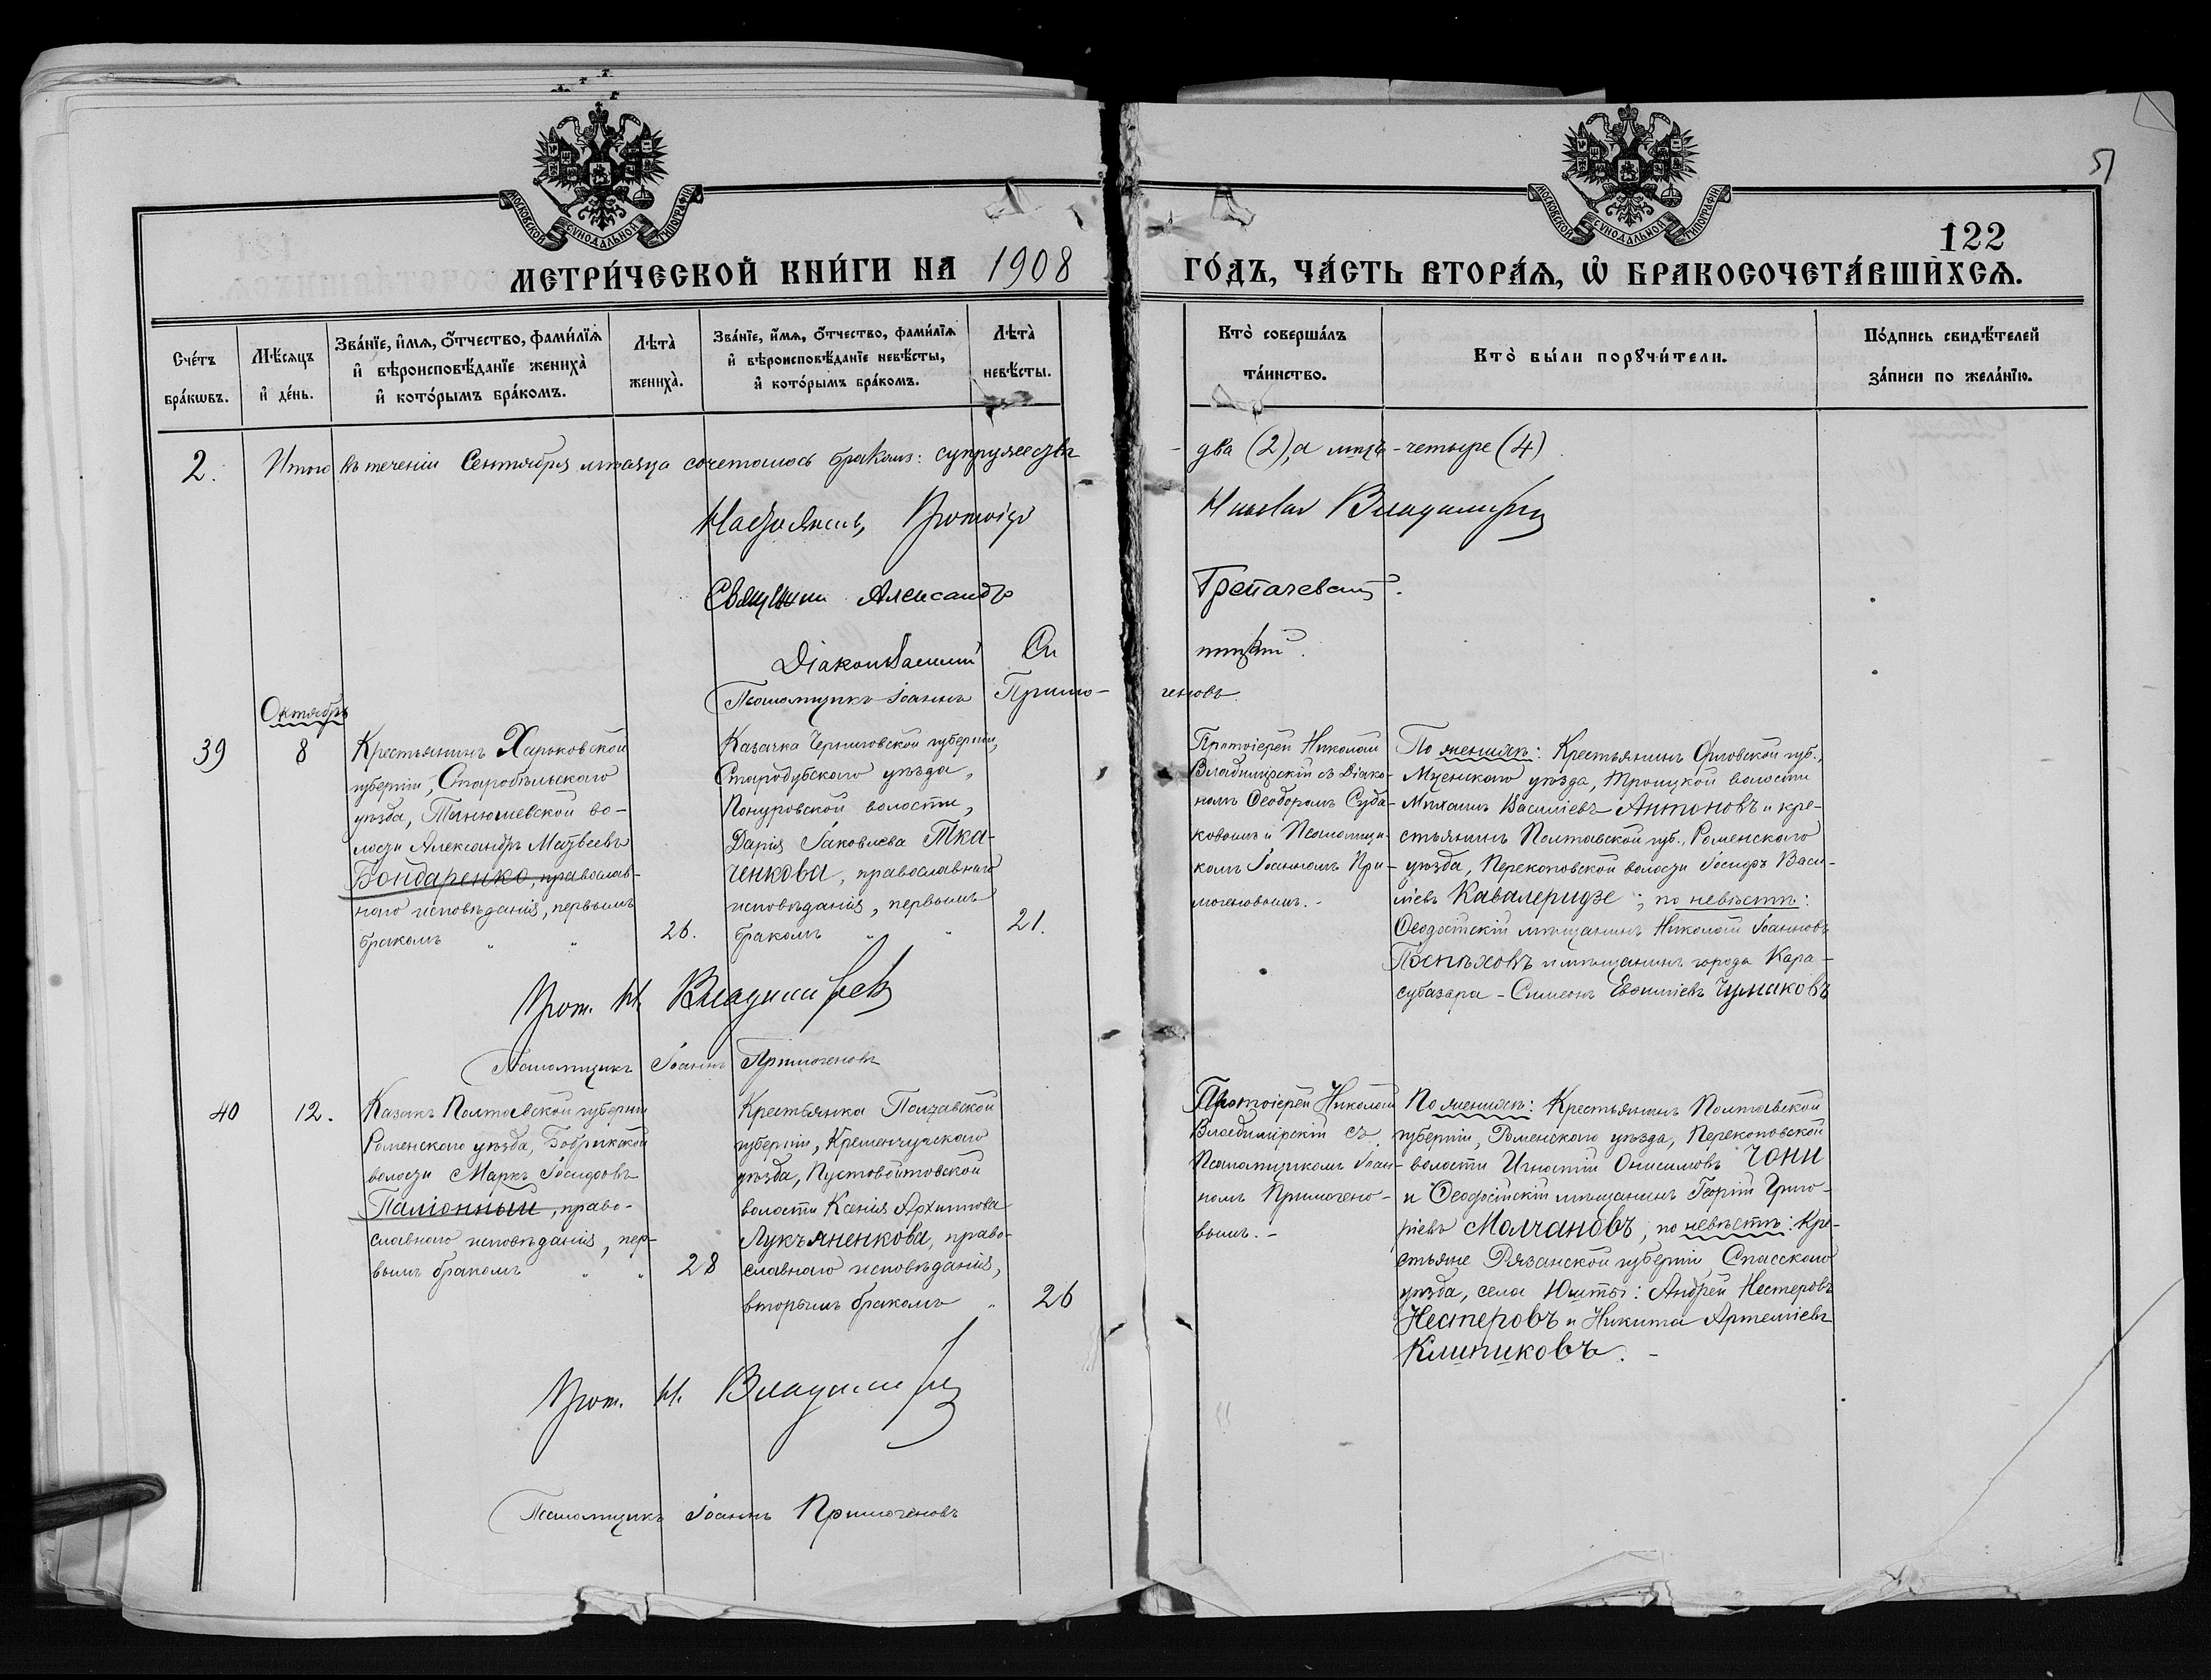 МОСКОВСКОЙ СѴНОДАЛЬНОЙ ТИПОГРАФІИ
МОСКОВСКОЙ СѴНОДАЛЬНОЙ ТИПОГРАФІИ
51
122
МЕТРИ́ЧЕСКОЙ КНИ́ГИ НА 1908 ГО́ДЪ, ЧА́СТЬ ВТОРА́Я, Ѡ҆ БРАКОСОЧЕТА́ВШИХСЯ.
Сче́тъ
бра́кѡвъ.
Мѣ́сяцъ
и҆ де́нь.
Зва́нїе, и҆́мѧ, ѻ҆́тчество, фами́лїѧ
и҆ вѣроисповѣ́данїе жениха̀
и҆ кото́рымъ бра́комъ.
Лѣта̀
жениха̀.
Зва́нїе, и҆́мѧ, ѻ҆́тчество, фами́лїѧ
и҆ вѣроисповѣ́данїе невѣ́сты,
и҆ кото́рымъ бра́комъ.
Лѣта̀
невѣ́сты.
Кто̀ соверша́лъ
та́инство.
Кто̀ бы́ли порꙋчи́тели.
По́дпись свидѣ́телей
за́писи по жела́нїю.
2. Итого въ теченіи Сентября мѣсяца сочеталось бракомъ: супружествъ - два (2), а лицъ - четыре (4)
Настоятель, Протоіер Николай Владимірск
Священни Александр
Діаконъ Василий
Псаломщикъ Іоаннъ Примо- геновъ
Октябрь
39
8
Крестьянинъ Харьковской
губерніи, Старобѣльскаго
уѣзда, Танюшевской во-
лости Александръ Матвѣевъ
Бондаренко, православ-
наго исповѣданія, первымъ
бракомъ " "
26.
Казачка Черниговской губерніи,
Стародубскаго уѣзда,
Понуровской волости,
Дарія Іаковлева Тка-
ченкова, православнаго
исповѣданія, первымъ
бракомъ " "
21.
Протоіерей Николай
Владимірскій съ Діако-
номъ Ѳеодоромъ Суда-
ковымъ и Псаломщи-
комъ Іоанномъ При-
могеновымъ. -
По женихѣ: Крестьянинъ Орловской губ.,
Мценскаго уѣзда, Троицкой волости
Михаилъ Василіевъ Антоновъ и кре-
стьянинъ Полтавской губ., Роменскаго
уѣзда, Перекоповской волости Іосифъ Васи-
ліевъ Кавалеридзе; по невѣстѣ:
Ѳеодосійскій мѣщанинъ Николай Іоанновъ
Поспѣховъ и мѣщанинъ города Кара-
субазара - Симеонъ Евѳиміевъ Чумаковъ
Прот. Н. Владимірск
Псаломщикъ Іоаннъ Примогеновъ
40
12.
Казакъ Полтавской губерніи
Роменскаго уѣзда, Бобрикской
волости Маркъ Іосифовъ
Паліонный, право-
славнаго исповѣданія, пер-
вымъ бракомъ " "
28
Крестьянка Полтавской
губерніи, Кременчугскаго
уѣзда, Пустовойтовской
волости Ксенія Архиппова
Лукъяненкова, право-
славнаго исповѣданія,
вторымъ бракомъ "
26
Протоіерей Николай
Владимірскій съ
Псаломщикомъ Іоан-
номъ Примогено-
вымъ. -
По женихѣ: Крестьянинъ Полтавской
губерніи, Роменскаго уѣзда, Перекоповской
волости Игнатій Онисимовъ Чони
и Ѳеодосійскій мѣщанинъ Георгій Григо-
ріевъ Молчановъ; по невѣстѣ: Кре-
стьяне Рязанской губерніи Спасскаго
уѣзда, села Ижты: Андрей Нестеровъ
Нестеровъ и Никита Артеміевъ
Клипиковъ. -
Прот. Н. Владимірск
Псаломщикъ Іоаннъ Примогеновъ